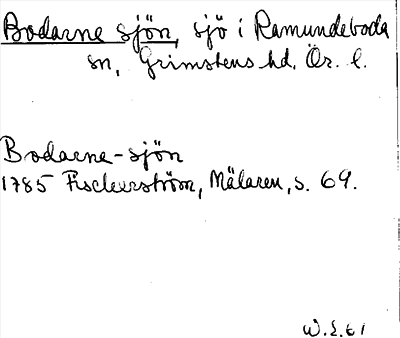 Bodarne sjön, sjö i Ramundeboda
sn, Grimstens hd. Ör. l.
Bodarne-sjön
1785 Fischerström, Mälaren, s. 69.
W.E. 61